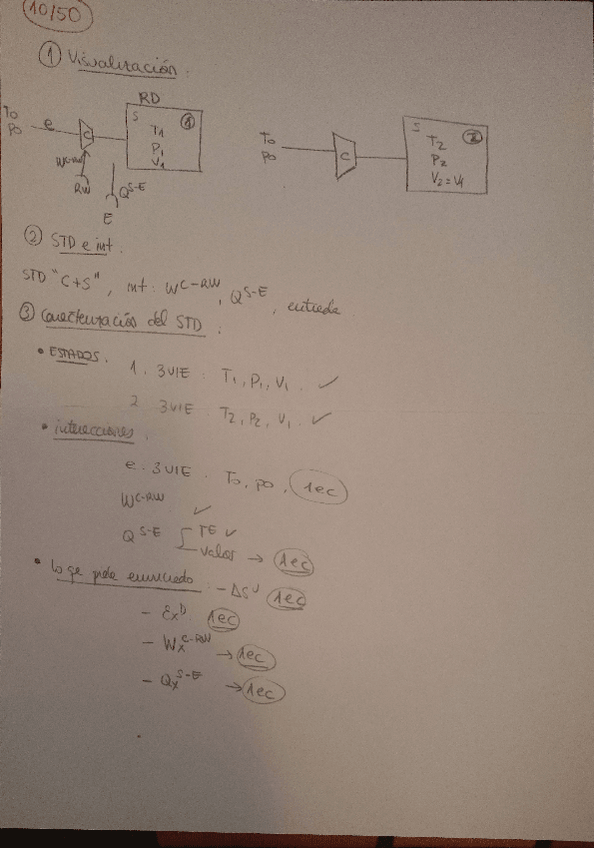 10/50
① Visualización.
RD
S ①
T1
P1
V1
To
po
e
C
WC-RW
RW
QS-E
E
To
po
C
S ②
T2
P2
V2 = V1
② STD e int.
STD "C+S", int: WC-RW, QS-E, entrada
③ Caracterización del STD.
• ESTADOS.
1. 3VIE: T1, P1, V1. ✓
2 3VIE: T2, P2, V1. ✓
• interacciones.
e. 3VIE. To, po, 1ec
WC-RW ✓
QS-E TE ✓
valor → 1ec
• Lo qe pide enunciado: - ΔSU 1ec
- ExD 1ec
- WxC-RW → 1ec
- QxS-E → 1ec